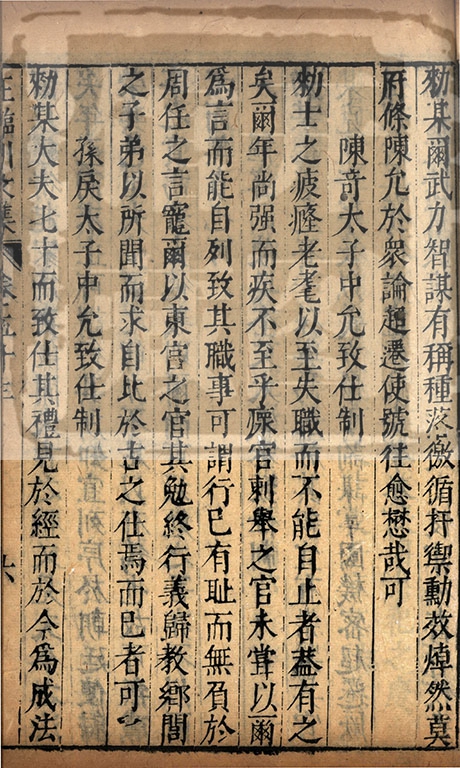 勑某爾武力智謀有稱種落徼循扞禦勳效焯然莫
府條陳允於衆論超遷使號往愈懋哉可
陳竒太子中允致仕制
勑士之疲癃老耄以至失職而不能自止者葢有之
矣爾年尚强而疾不至乎㾕官刺舉之官未甞以爾
爲言而能自列致其職事可謂行巳有耻而無負於
周任之言寵爾以東宫之官其勉終行義歸教鄉閭
之子弟以所聞而求自比於古之仕焉而巳者可
孫戾太子中允致仕制
勑某大夫七十而致仕其禮見於經而於今爲成法
王臨川文集 卷五十三 六